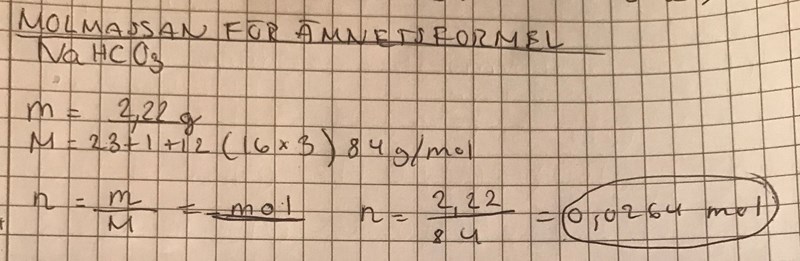 MOLMASSAN FÖR ÄMNETSFORMEL
NaHCO₃
m = 2,22 g
M = 23+1+12 (16×3) 84 g/mol
n = m/M = mol n = 2,22/84 = 0,0264 mol